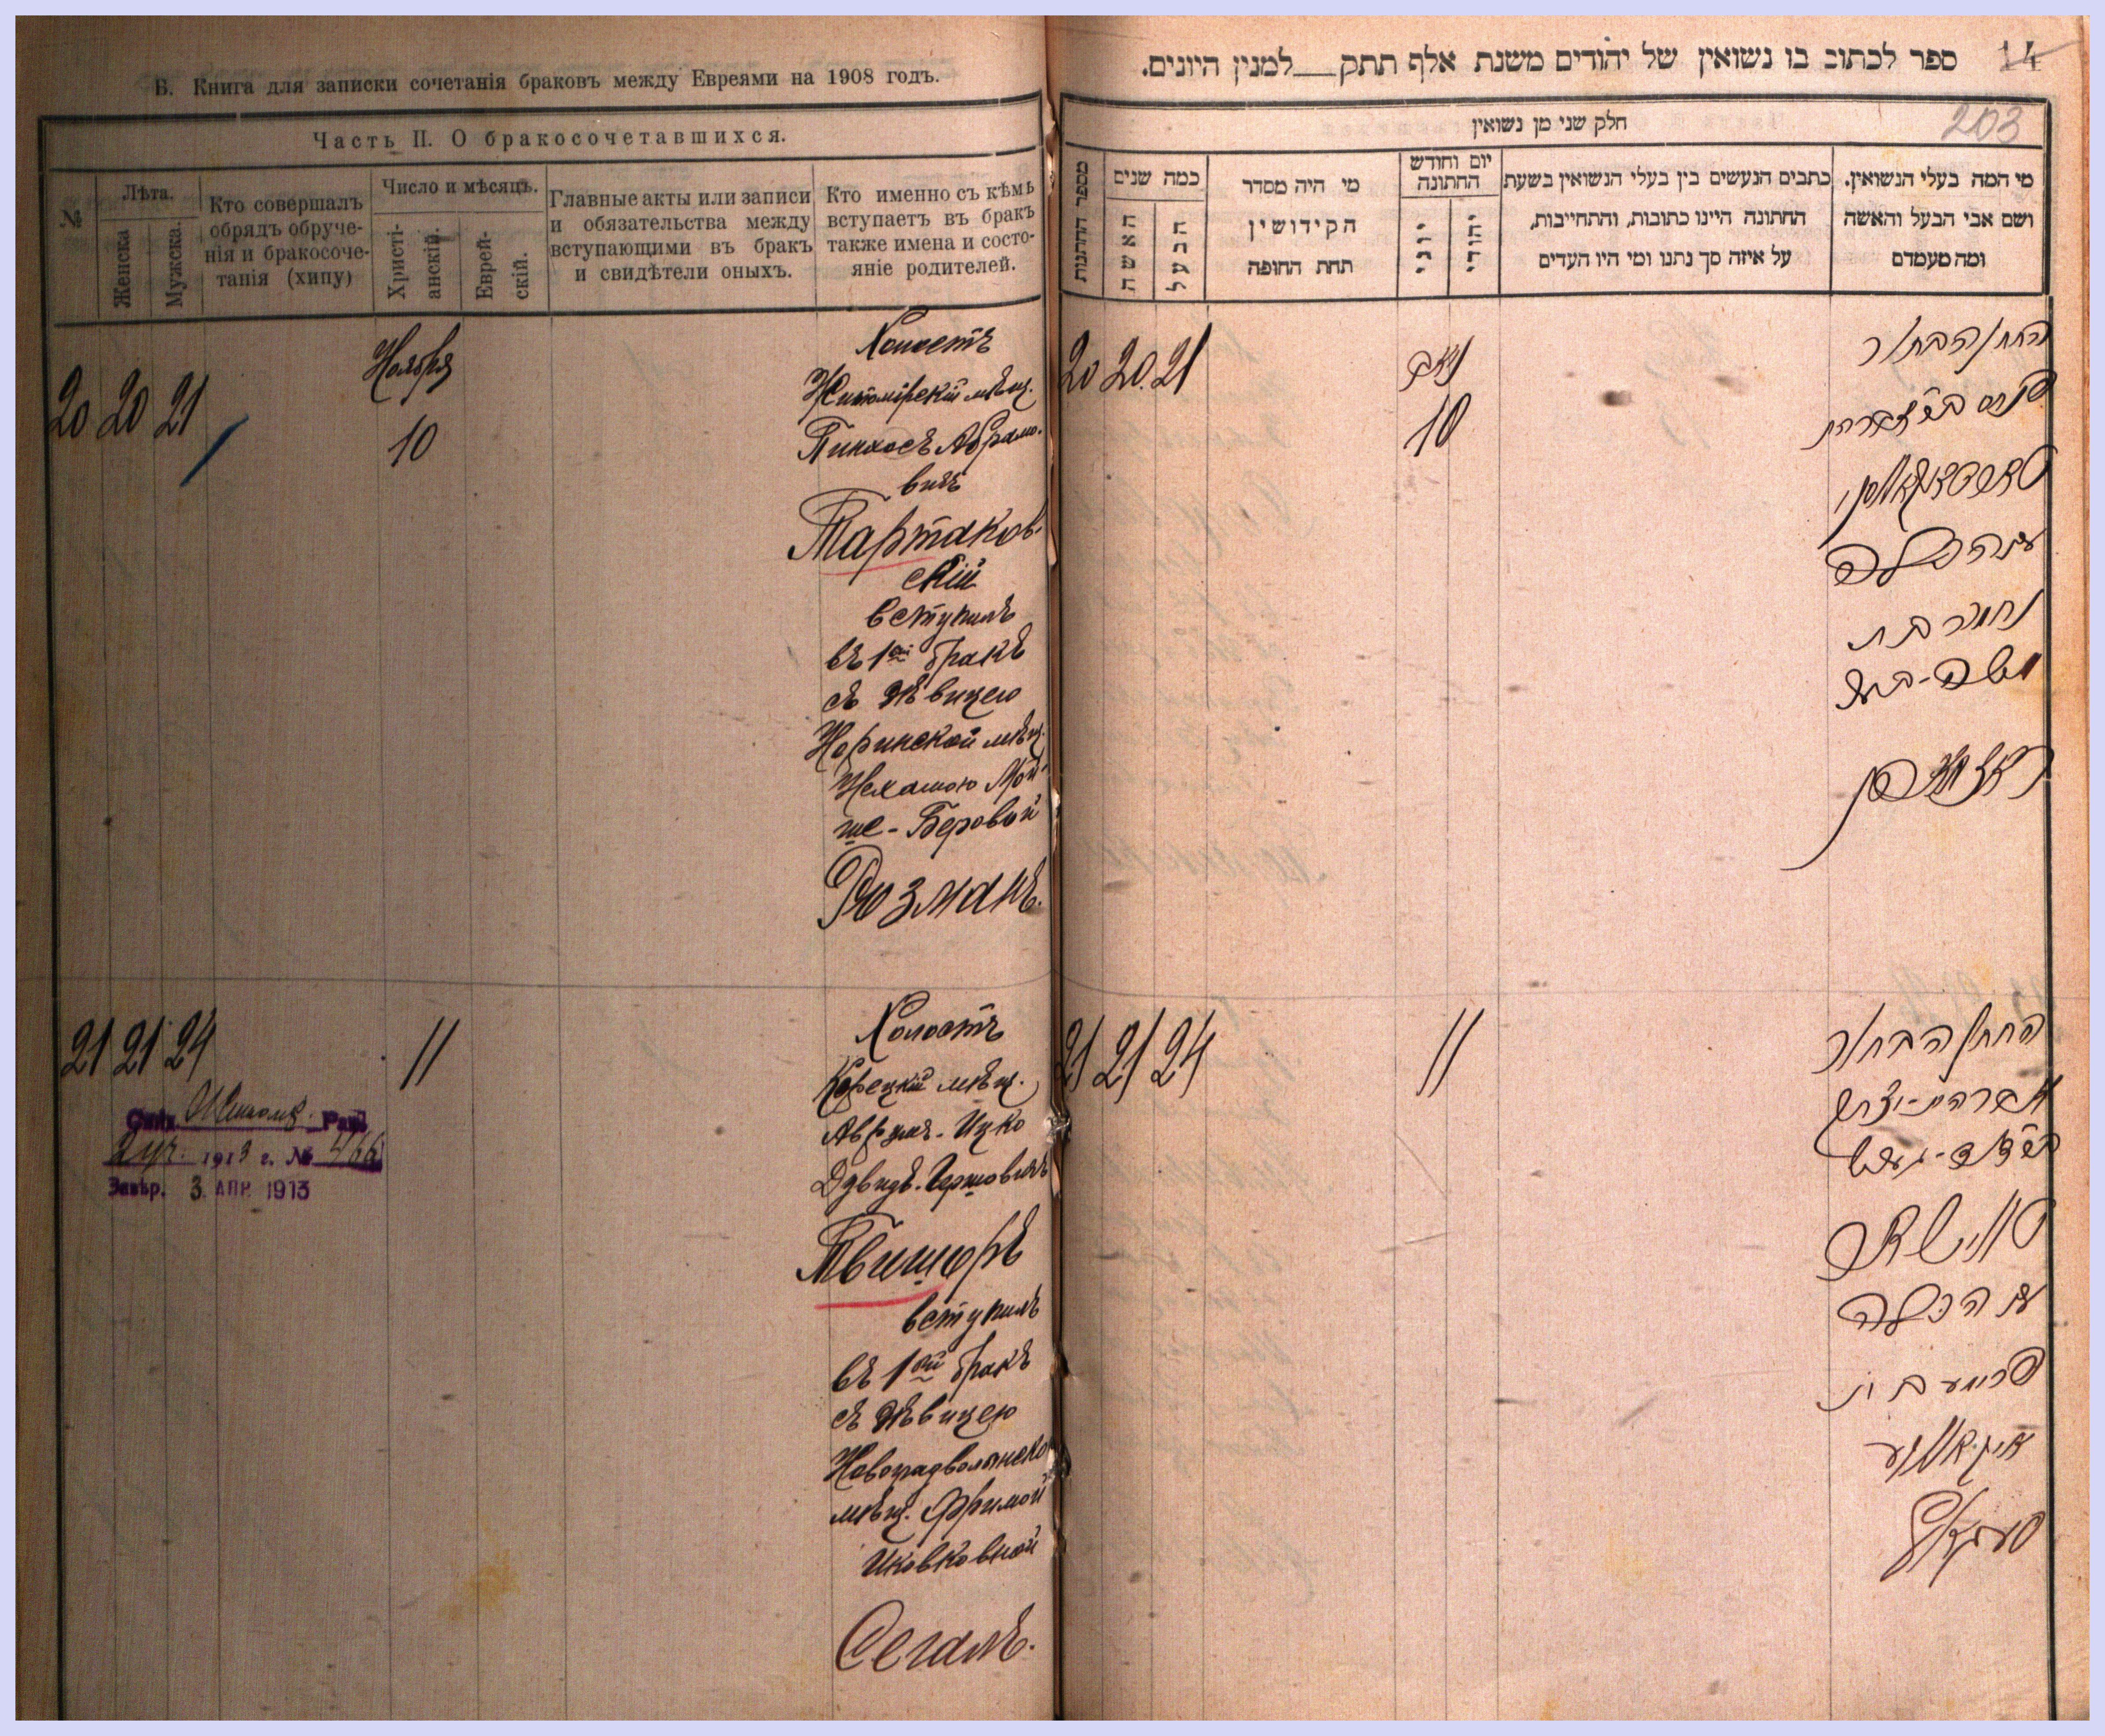 Б. Книга для записки сочетанія браковъ между Евреями на 1908 годъ.
Часть II. О бракосочетавшихся.
№
Лѣта.
Женска
Мужска.
Кто совершалъ
обрядъ обруче-
нія и бракосоче-
танія (хипу)
Число и мѣсяцъ.
Христі-
анскій.
Еврей-
скій.
Главные акты или записи
и обязательства между
вступающими въ бракъ
и свидѣтели оныхъ.
Кто именно съ кѣмъ
вступаетъ въ бракъ
также имена и состо-
яніе родителей.
20 20 21
Ноября
10
Холостъ
Житомірскій мѣщ.
Пинхосъ Абрамо-
вичъ
Тартаков-
скій
вступилъ
въ 1ый бракъ
съ дѣвицею
Норинской мѣщ.
Нехамою Мой-
ше-Беровой
Рюзманъ.
21 21 24
11
1913 г. № 466
Завѣр. 3 АПР. 1913
Холостъ
Корецкій мѣщ.
Аврумъ-Ицко
Давидъ-Гершовичъ
Твишоръ
вступилъ
въ 1ый бракъ
съ дѣвицею
Новоградволынско
мѣщ. Фримой
Иковковной
Сегалъ.
14
ספר לכתוב בו נשואין של יהודים משנת אלף תתק__למנין היונים.
203
חלק שני מן נשואין
מספר החתונות
כמה שנים
האשה
הבעל
מי היה מסדר
הקידושין
תחת החופה
יום וחודש
החתונה
יוני
יהודי
כתבים הנעשים בין בעלי הנשואין בשעת
החתונה היינו כתובות, והתחייבות,
על איזה סך נתנו ומי היו העדים
מי המה בעלי הנשואין.
ושם אבי הבעל והאשה
ומה מעמדם
20 20. 21
נאב
10
החתן הבחור
פנחס ב״ר אברהם
טארטאקאווסקי
עם הכלה
נחמה בת
משה-בער
21 21 24
11
החתן הבחור
אברהם-יצחק
ב״ר דוד-הערש
עם הכלה
פרימע בת
סעגאל